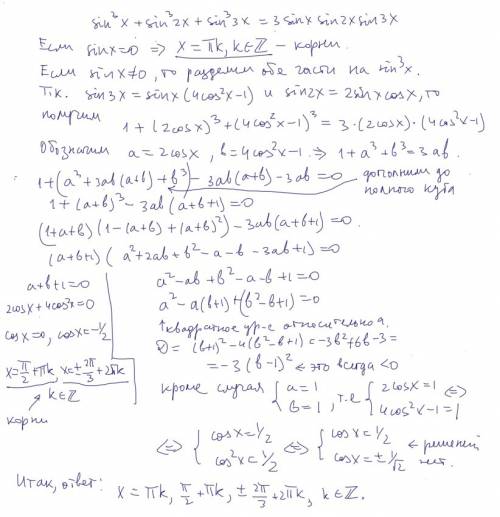 sin²x + sin³2x + sin³3x = 3 sinx sin2x sin3x
Если sinx=0 ⇒ x=πk, k∈ℤ – корни.
Если sinx≠0, то разделим обе части на sin³x.
Т.к. sin3x = sinx(4cos²x-1) и sin2x = 2sinx cosx, то
получим 1+(2cosx)³+(4cos²x-1)³ = 3·(2cosx)·(4cos²x-1)
Обозначим a=2cosx, b=4cos²x-1. ⇒ 1+a³+b³=3ab.
1+(a³+3ab(a+b)+b³)-3ab(a+b)-3ab=0
дополним до
полного куба
1+(a+b)³-3ab(a+b+1)=0
(1+a+b)(1-(a+b)+(a+b)²)-3ab(a+b+1)=0
(a+b+1)(a²+2ab+b²-a-b-3ab+1)=0
a+b+1=0
2cosx+4cos²x=0
cosx=0, cosx=-1/2
x=π/2+πk, x=±2π/3+2πk
k∈ℤ
корни
a²-ab+b²-a-b+1=0
a²-a(b+1)+(b²-b+1)=0
↑квадратное ур-е относительно a.
D=(b+1)²-4(b²-b+1)=-3b²+6b-3=
=-3(b-1)² ← это всегда <0
кроме случая { a=1 b=1, т.е { 2cosx=1 4cos²x-1=1 ⇔
⇔ { cosx=1/2 cos²x=1/2 ⇔ { cosx=1/2 cosx=±1/√2 ← решений нет.
Итак, ответ: x=πk, π/2+πk, ±2π/3+2πk, k∈ℤ.